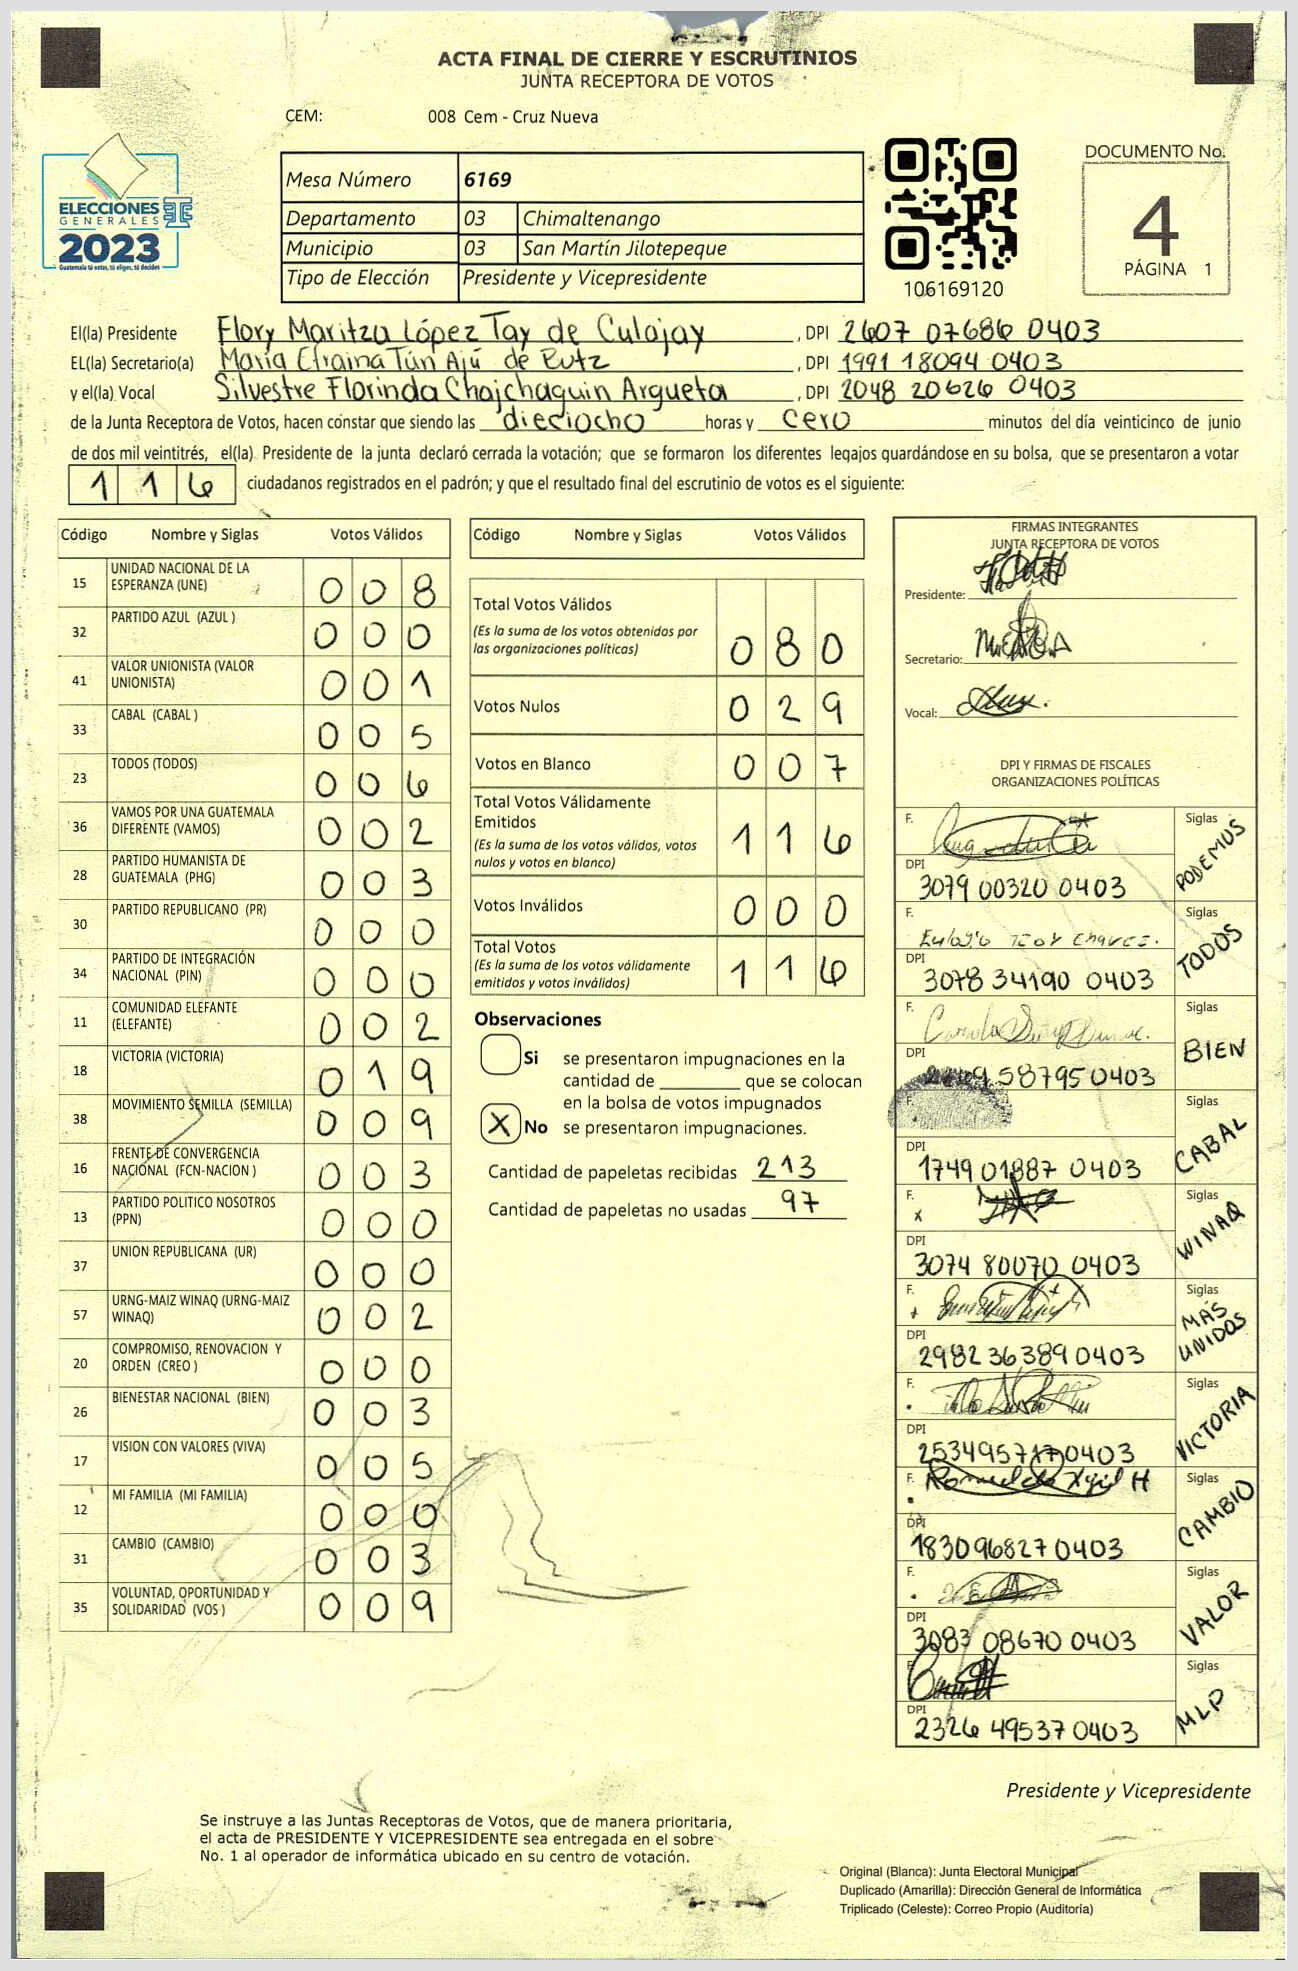 ACTA FINAL DE CIERRE Y ESCRUTINIOS
JUNTA RECEPTORA DE VOTOS
CEM: 008 Cem - Cruz Nueva
ELECCIONES
GENERALES
2023
Guatemala tú votas, tú eliges, tú decides
Mesa Número 6169
Departamento 03 Chimaltenango
Municipio 03 San Martín Jilotepeque
Tipo de Elección Presidente y Vicepresidente
106169120
DOCUMENTO No.
4
PÁGINA 1
El(la) Presidente Flory Maritza López Tay de Culajay, DPI 2607 07686 0403
EL(la) Secretario(a) María Efraina Tún Ajú de Rutz, DPI 1991 18094 0403
y el(la) Vocal Silvestre Florinda Chajchaguin Argueta, DPI 2048 20626 0403
de la Junta Receptora de Votos, hacen constar que siendo las dieciocho horas y cero minutos del día veinticinco de junio
de dos mil veintitrés, el(la) Presidente de la junta declaró cerrada la votación; que se formaron los diferentes legajos guardándose en su bolsa, que se presentaron a votar
116 ciudadanos registrados en el padrón; y que el resultado final del escrutinio de votos es el siguiente:
Código Nombre y Siglas Votos Válidos
15 UNIDAD NACIONAL DE LA ESPERANZA (UNE) 008
32 PARTIDO AZUL (AZUL ) 000
41 VALOR UNIONISTA (VALOR UNIONISTA) 001
33 CABAL (CABAL ) 005
23 TODOS (TODOS) 006
36 VAMOS POR UNA GUATEMALA DIFERENTE (VAMOS) 002
28 PARTIDO HUMANISTA DE GUATEMALA (PHG) 003
30 PARTIDO REPUBLICANO (PR) 000
34 PARTIDO DE INTEGRACIÓN NACIONAL (PIN) 000
11 COMUNIDAD ELEFANTE (ELEFANTE) 002
18 VICTORIA (VICTORIA) 019
38 MOVIMIENTO SEMILLA (SEMILLA) 009
16 FRENTE DE CONVERGENCIA NACIONAL (FCN-NACION ) 003
13 PARTIDO POLITICO NOSOTROS (PPN) 000
37 UNION REPUBLICANA (UR) 000
57 URNG-MAIZ WINAQ (URNG-MAIZ WINAQ) 002
20 COMPROMISO, RENOVACION Y ORDEN (CREO ) 000
26 BIENESTAR NACIONAL (BIEN) 003
17 VISION CON VALORES (VIVA) 005
12 MI FAMILIA (MI FAMILIA) 000
31 CAMBIO (CAMBIO) 003
35 VOLUNTAD, OPORTUNIDAD Y SOLIDARIDAD (VOS ) 009
Código Nombre y Siglas Votos Válidos
Total Votos Válidos
(Es la suma de los votos obtenidos por
las organizaciones políticas) 080
Votos Nulos 029
Votos en Blanco 007
Total Votos Válidamente
Emitidos
(Es la suma de los votos válidos, votos
nulos y votos en blanco) 116
Votos Inválidos 000
Total Votos
(Es la suma de los votos válidamente
emitidos y votos inválidos) 116
Observaciones
Si se presentaron impugnaciones en la
cantidad de ________ que se colocan
en la bolsa de votos impugnados
X No se presentaron impugnaciones.
Cantidad de papeletas recibidas 213
Cantidad de papeletas no usadas 97
FIRMAS INTEGRANTES
JUNTA RECEPTORA DE VOTOS
Presidente:
Secretario:
Vocal:
DPI Y FIRMAS DE FISCALES
ORGANIZACIONES POLÍTICAS
F. Siglas PODEMUS
DPI 3079 00320 0403
F. Siglas TODOS
DPI 3078 34190 0403
F. Siglas BIEN
DPI 58795 0403
F. Siglas CABAL
DPI 1749 01887 0403
F. x Siglas WINAQ
DPI 3074 80070 0403
F. Siglas MÁS UNIDOS
DPI 2982 36389 0403
F. Siglas VICTORIA
DPI 2534957170403
F. Siglas CAMBIO
DPI 1830968270403
F. Siglas VALOR
DPI 3083 08670 0403
F. Siglas MLP
DPI 2326 49537 0403
Presidente y Vicepresidente
Se instruye a las Juntas Receptoras de Votos, que de manera prioritaria,
el acta de PRESIDENTE Y VICEPRESIDENTE sea entregada en el sobre
No. 1 al operador de informática ubicado en su centro de votación.
Original (Blanca): Junta Electoral Municipal
Duplicado (Amarilla): Dirección General de Informática
Triplicado (Celeste): Correo Propio (Auditoría)